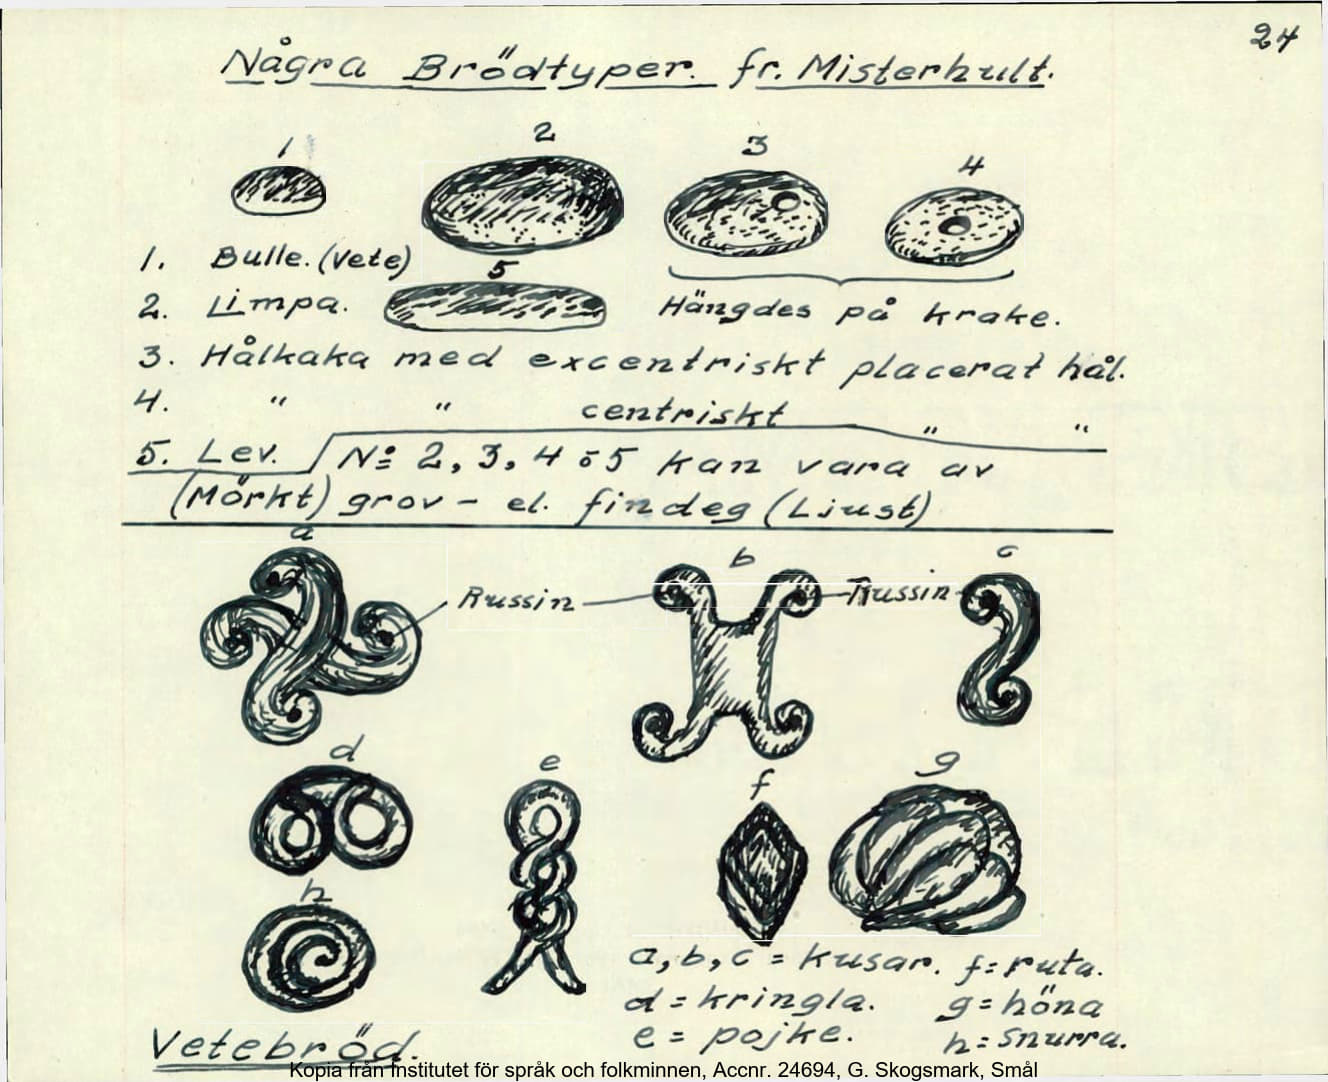 24
Några Brödtyper. fr. Misterhult.
1 2 3 4
1. Bulle. (Vete) 5
2. Limpa. Hängdes på krake.
3. Hålkaka med excentriskt placerat hål.
4. " " centriskt " "
5. Lev. No 2, 3, 4 ö 5 kan vara av
(Mörkt) grov - el. findeg (Ljust)
a b c
Russin Russin
d e f g
h
a, b, c = kusar. f = ruta.
d = kringla. g = höna
e = pojke. h = snurra.
Vetebröd.
Kopia från Institutet för språk och folkminnen, Accnr. 24694, G. Skogsmark, Smål